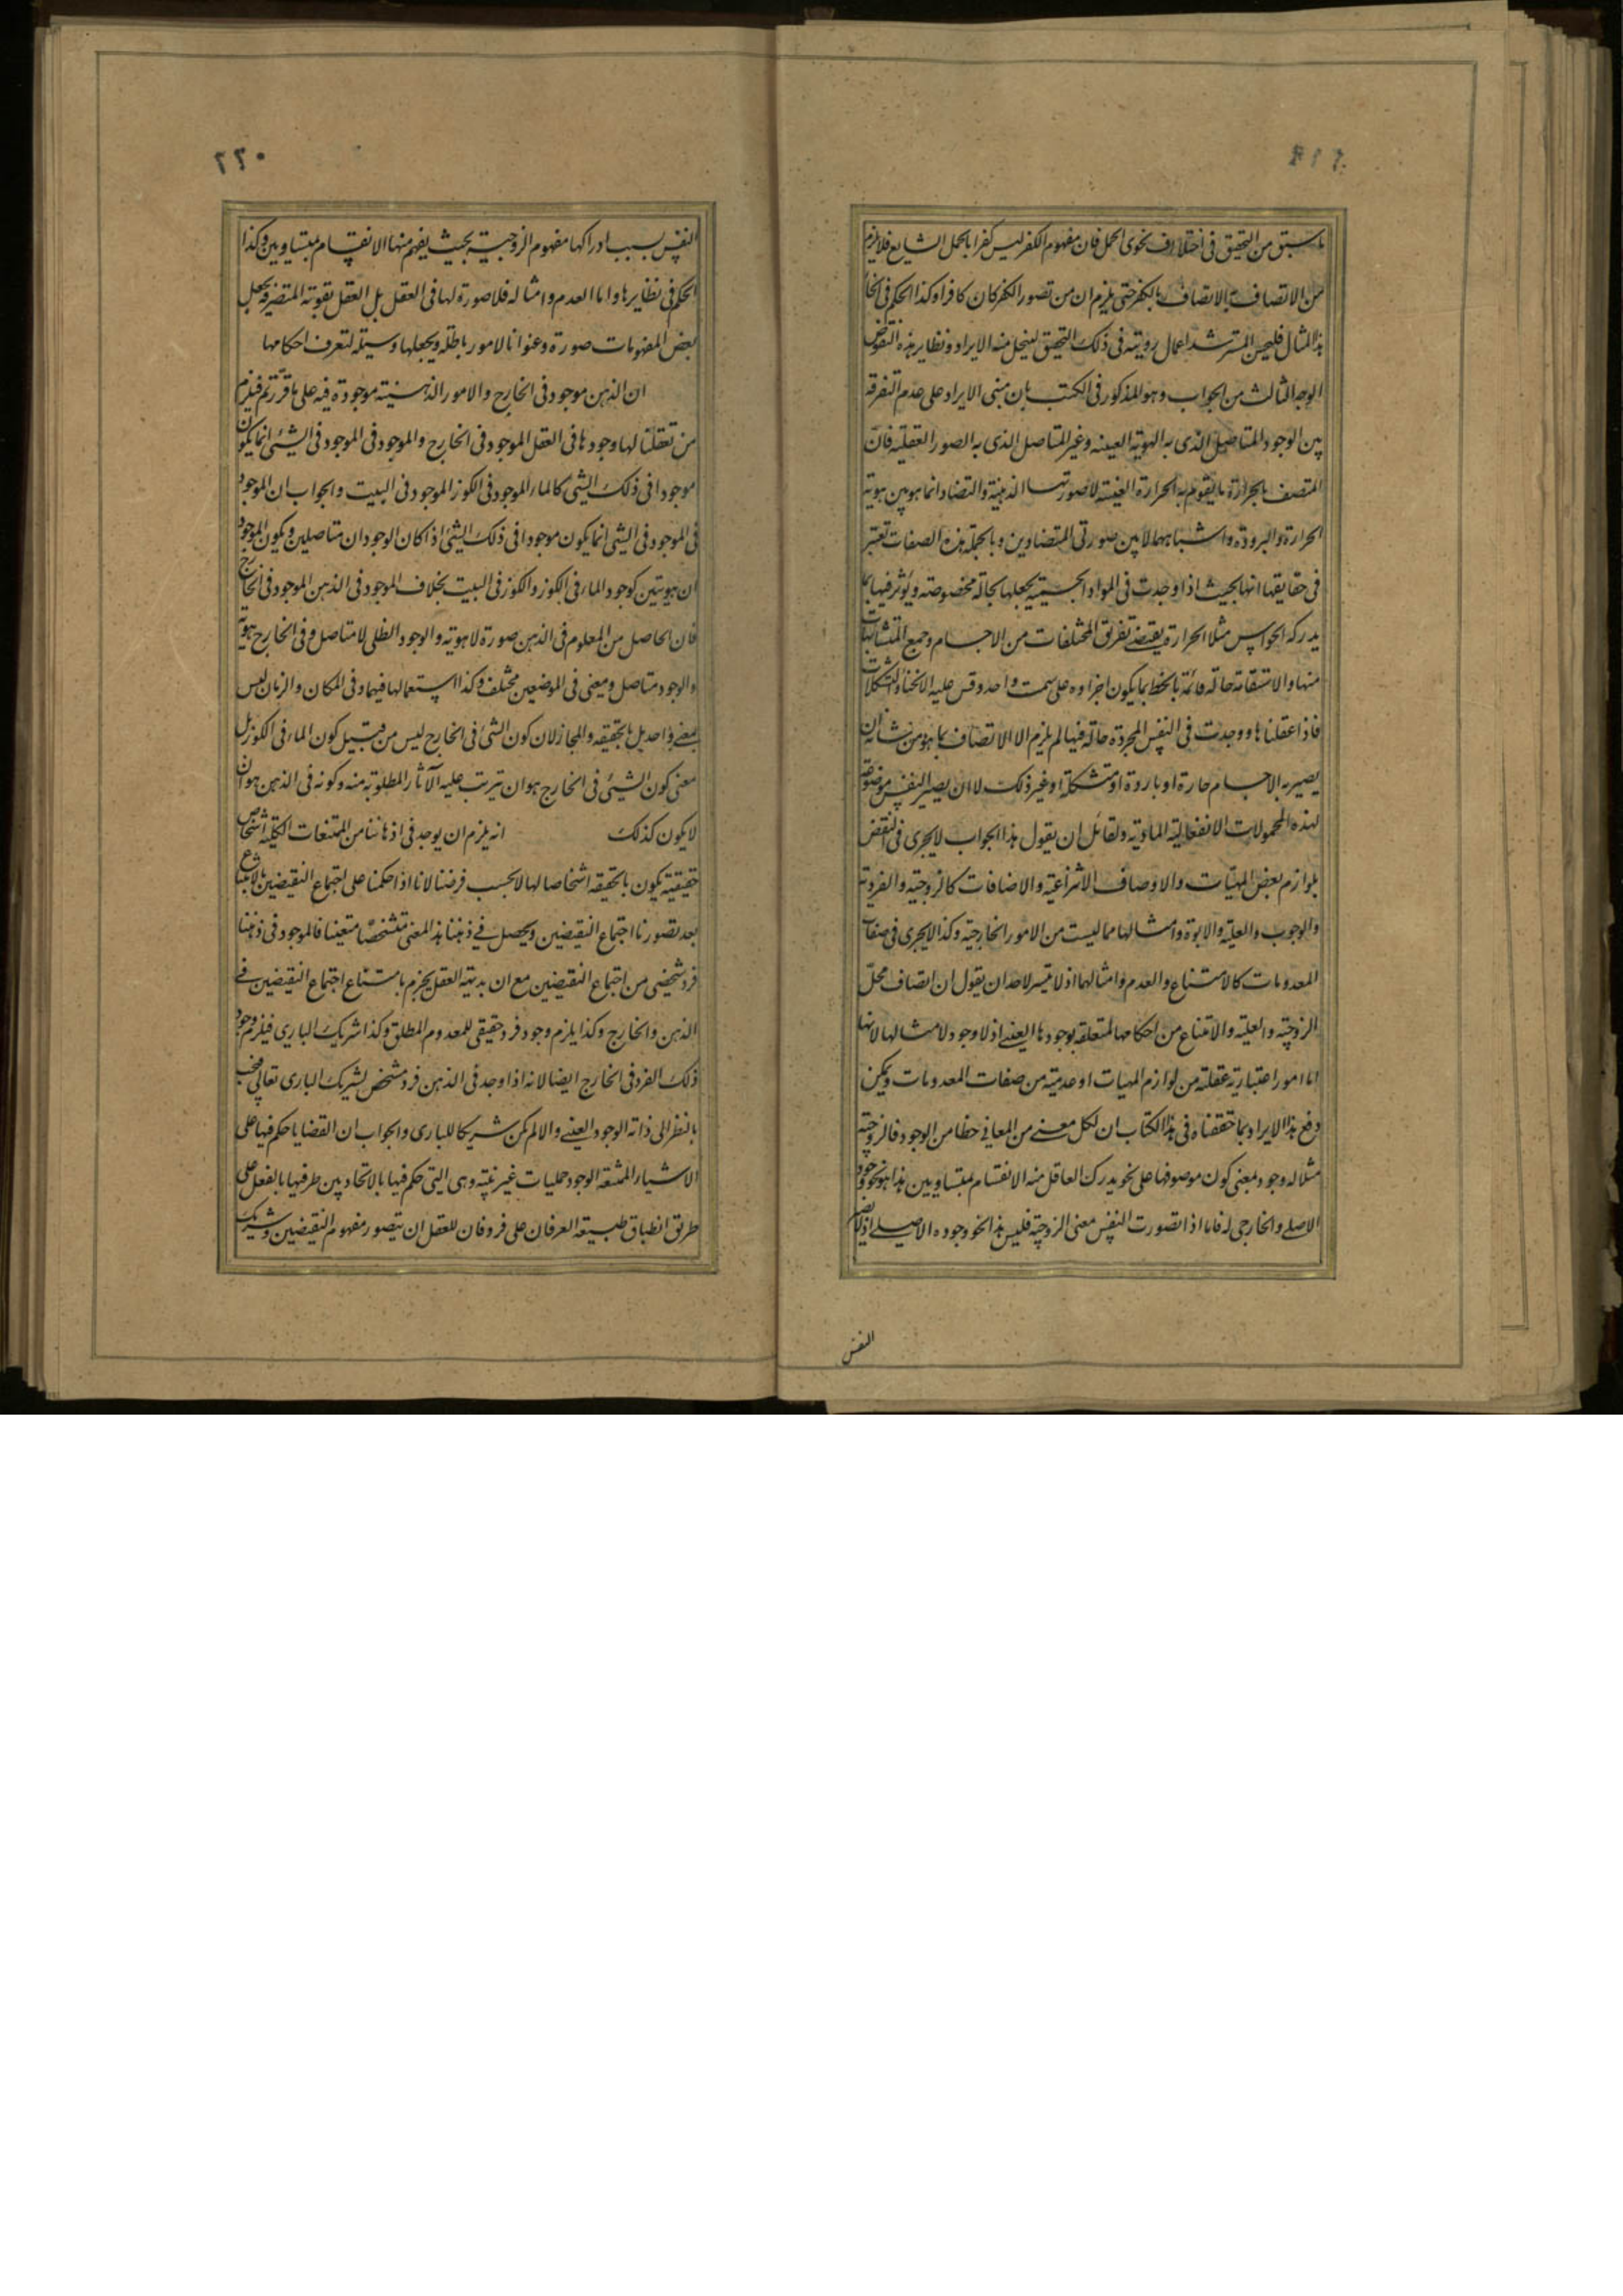 ٢١٩
ما سبق من التحقيق فى اختلاف نحوى الحمل فان مفهوم الكفر ليس كفرا بالحمل الشايع فلا يلزم
من الاتصاف به الاتصاف بالكفر حتى يلزم ان من تصور الكفر كان كافرا وكذا الحكم فى انحاء
هذا المثال فليحسن المسترشد اعمال رويته فى ذلك التحقيق لينحل منه الايراد ونظاير هذه النقوض
الوجه الثالث من الجواب وهو المذكور فى الكتب بان مبنى الايراد على عدم التفرقة
بين الوجود المتاصل الذى به الهوية العينه وغير المتاصل الذى به الصور العقلية فان
المتصف بالحرارة ما يقوم به الحرارة العينية لا صورتها الذهنية والتضاد انما هو بين هوية
الحرارة والبرودة واشباههما لا بين صورتى المتضادين وبالجملة هذه الصفات تعتبر
فى حقايقها انها بحيث اذا وجدت فى المواد الجسميه يجعلها بحالة مخصوصة ويؤثر فيها بما
يدركه الحواس مثلا الحرارة يقتضى تفريق المختلفات من الاجسام وجمع المتشابهات
منها والاستقامة حالة قائمة بالخط بما يكون اجزاوه على سمت واحد وقس عليه الانحناء والتشكلات
فاذا عقلناها ووجدت فى النفس المجردة حالة فيها لم يلزم الا الاتصاف بما هو من شانه ان
يصير به الاجسام حارة او باردة او متشكلة او غير ذلك لا ان يصير النفس موضوعة
لهذه المحمولات الانفعالية المادية ولقائل ان يقول هذا الجواب لا يجرى فى النقض
بلوازم بعض المهيات والاوصاف الانتزاعية والاضافات كالزوجية والفردية
والوجوب والعلية والابوة وامثالها مما ليست من الامور الخارجية وكذا لا يجرى فى صفات
المعدومات كالامتناع والعدم وامثالهما اذ لا تيسر لاحد ان يقول ان اتصاف محل
الزوجية والعلية والامتناع من احكامها المتعلقة بوجودها العينى اذ لا وجود لامثالها لانها
اما امور اعتبارية عقلية من لوازم المهيات او عدمية من صفات المعدومات ويمكن
دفع هذا الايراد بما حققناه فى هذا الكتاب ان لكل معنى من المعانى حظا من الوجود فالزوجية
مثلا له وجود بمعنى كون موصوفها على نحو يدرك العاقل منه الانقسام بمتساويين هذا هو نحو وجود
الاصلى والخارجى له فاما اذا تصورت النفس معنى الزوجية فليس هذا نحو وجوده الاصلى اذ لا يصير
النفس
٢٢٠
النفس بسبب ادراكها مفهوم الزوجية بحيث يفهم منها الانقسام بمتساويين وكذا
الحكم فى نظايرها واما العدم وامثاله فلا صورة لها فى العقل بل العقل بقوته المتصرفة يجعل
بعض المفهومات صورة وعنوانا لامور باطلة ويجعلها وسيلة لتعرف احكامها
ان الذهن موجود فى الخارج والامور الذهنية موجودة فيه على ما قررتم فيلزم
من تعقلنا لها وجودها فى العقل الموجود فى الخارج والموجود فى الموجود فى الشىء انما يكون
موجودا فى ذلك الشى كالماء الموجود فى الكوز الموجود فى البيت والجواب ان الموجود
فى الموجود فى الشى انما يكون موجودا فى ذلك الشىء اذا كان الوجودان متاصلين ويكون الموجود
ان هويتين كوجود الماء فى الكوز والكوز فى البيت بخلاف الموجود فى الذهن الموجود فى الخارج
فان الحاصل من المعلوم فى الذهن صورة لا هوية والوجود الظلى لا متاصل وفى الخارج هوية
والوجود متاصل ومعنى فى الموضعين مختلف وكذا استعمالها فيهما وفى المكان والزمان ليس
بمعنى واحد بل بالحقيقه والمجاز لان كون الشى فى الخارج ليس من قبيل كون الماء فى الكوز بل
معنى كون الشىء فى الخارج هو ان يترتب عليه الآثار المطلوبة منه وكونه فى الذهن هو ان
لا يكون كذلك انه يلزم ان يوجد فى اذهاننا من الممتنعات الكلية اشخاص
حقيقية يكون بالحقيقه اشخاصا لها لا بحسب فرضنا لانا اذا حكمنا على اجتماع النقيضين بالامتناع
بعد تصورنا اجتماع النقيضين ويحصل فى ذهننا هذا المعنى متشخصا متعينا فالموجود فى ذهننا
فرد شخصى من اجتماع النقيضين مع ان بديهة العقل يجزم بامتناع اجتماع النقيضين فى
الذهن والخارج وكذا يلزم وجود فرد حقيقى للمعدوم المطلق وكذا شريك البارى فيلزم وجود
ذلك الفرد فى الخارج ايضا لانه اذا وجد فى الذهن فرد مشخص لشريك البارى تعالى فيجب
بالنظر الى ذاته الوجود العينى والا لم يكن شريكا للبارى والجواب ان القضايا حكم فيها على
الاشياء الممتنعة الوجود حمليات غير بتية وهى التى حكم فيها بالاتحاد بين طرفيها بالفعل على
طريق انطباق طبيعة العرفان على فرد فان للعقل ان يتصور مفهوم النقيضين وشريك